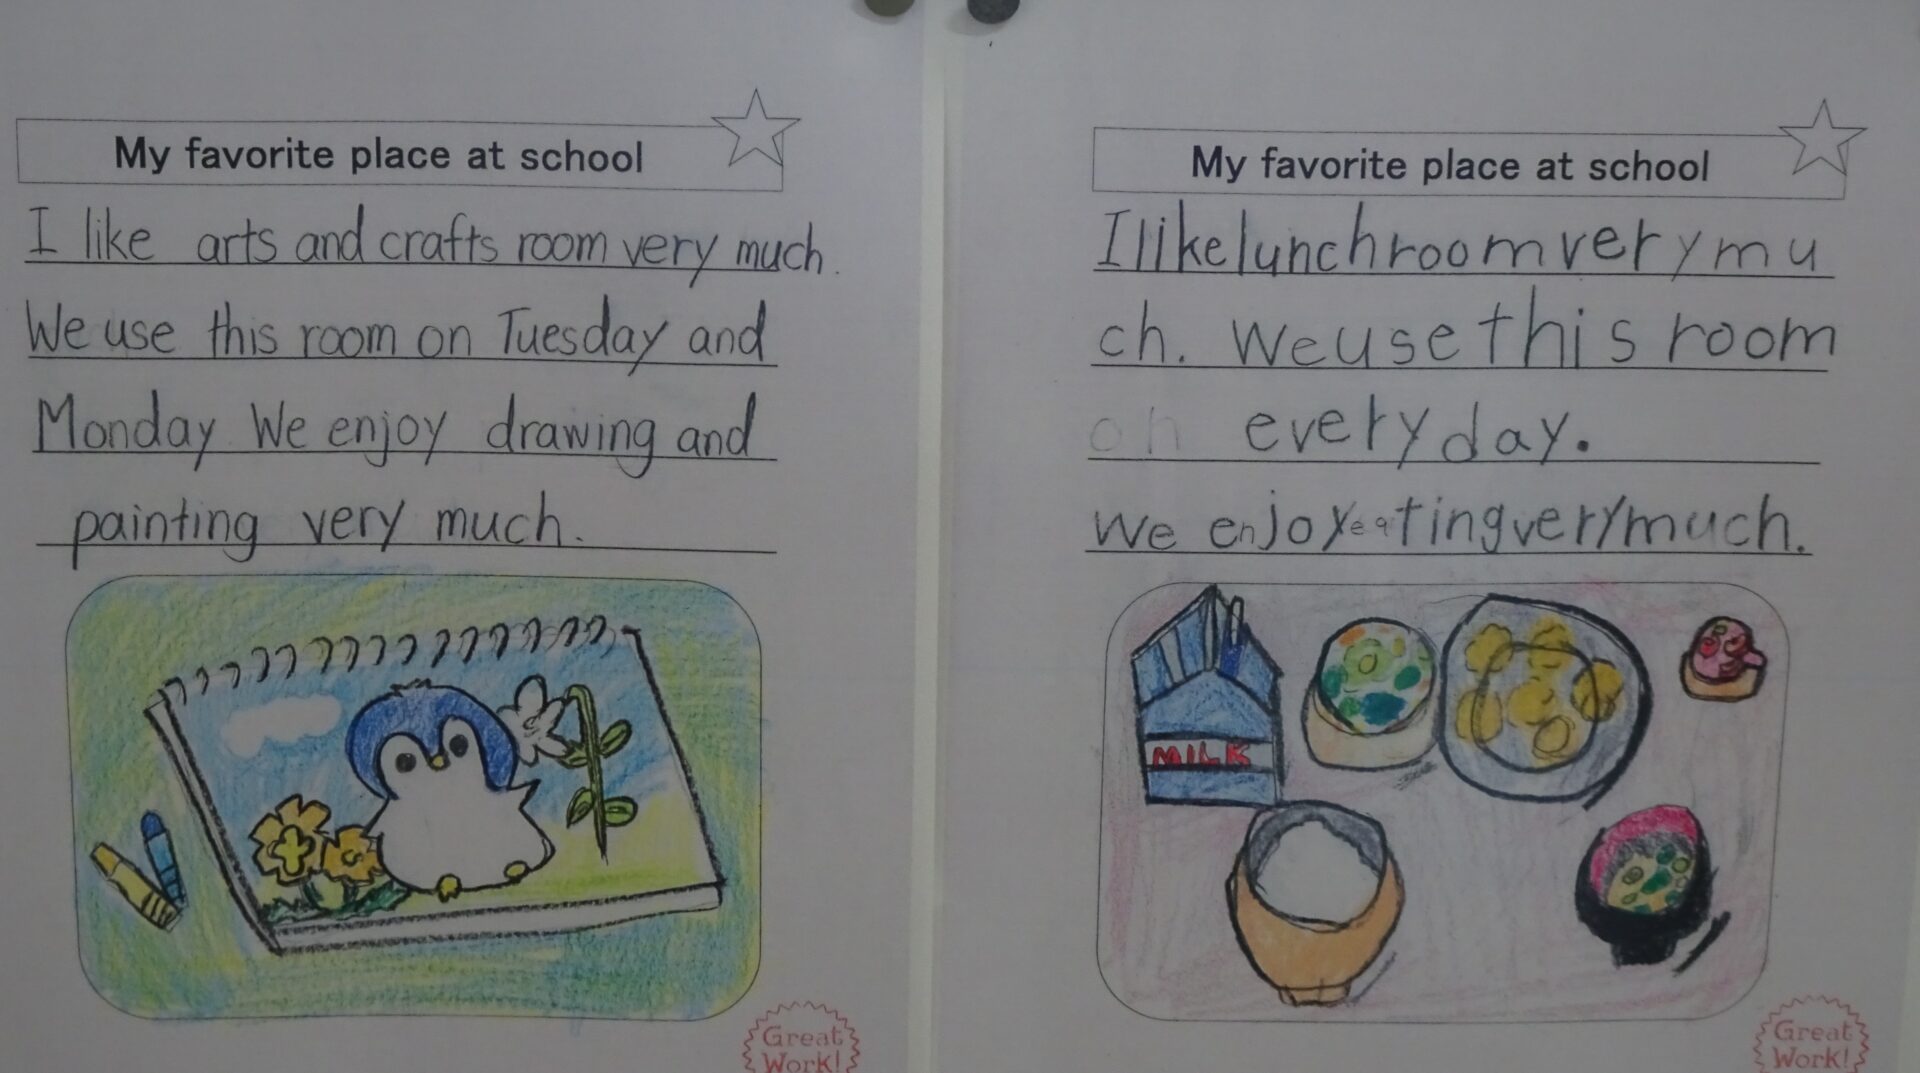 My favorite place at school
I like arts and crafts room very much.
We use this room on Tuesday and
Monday. We enjoy drawing and
painting very much.
Great
Work!
My favorite place at school
I like lunch room very mu
ch. We use this room
on every day.
We enjoy eating very much.
MILK
Great
Work!